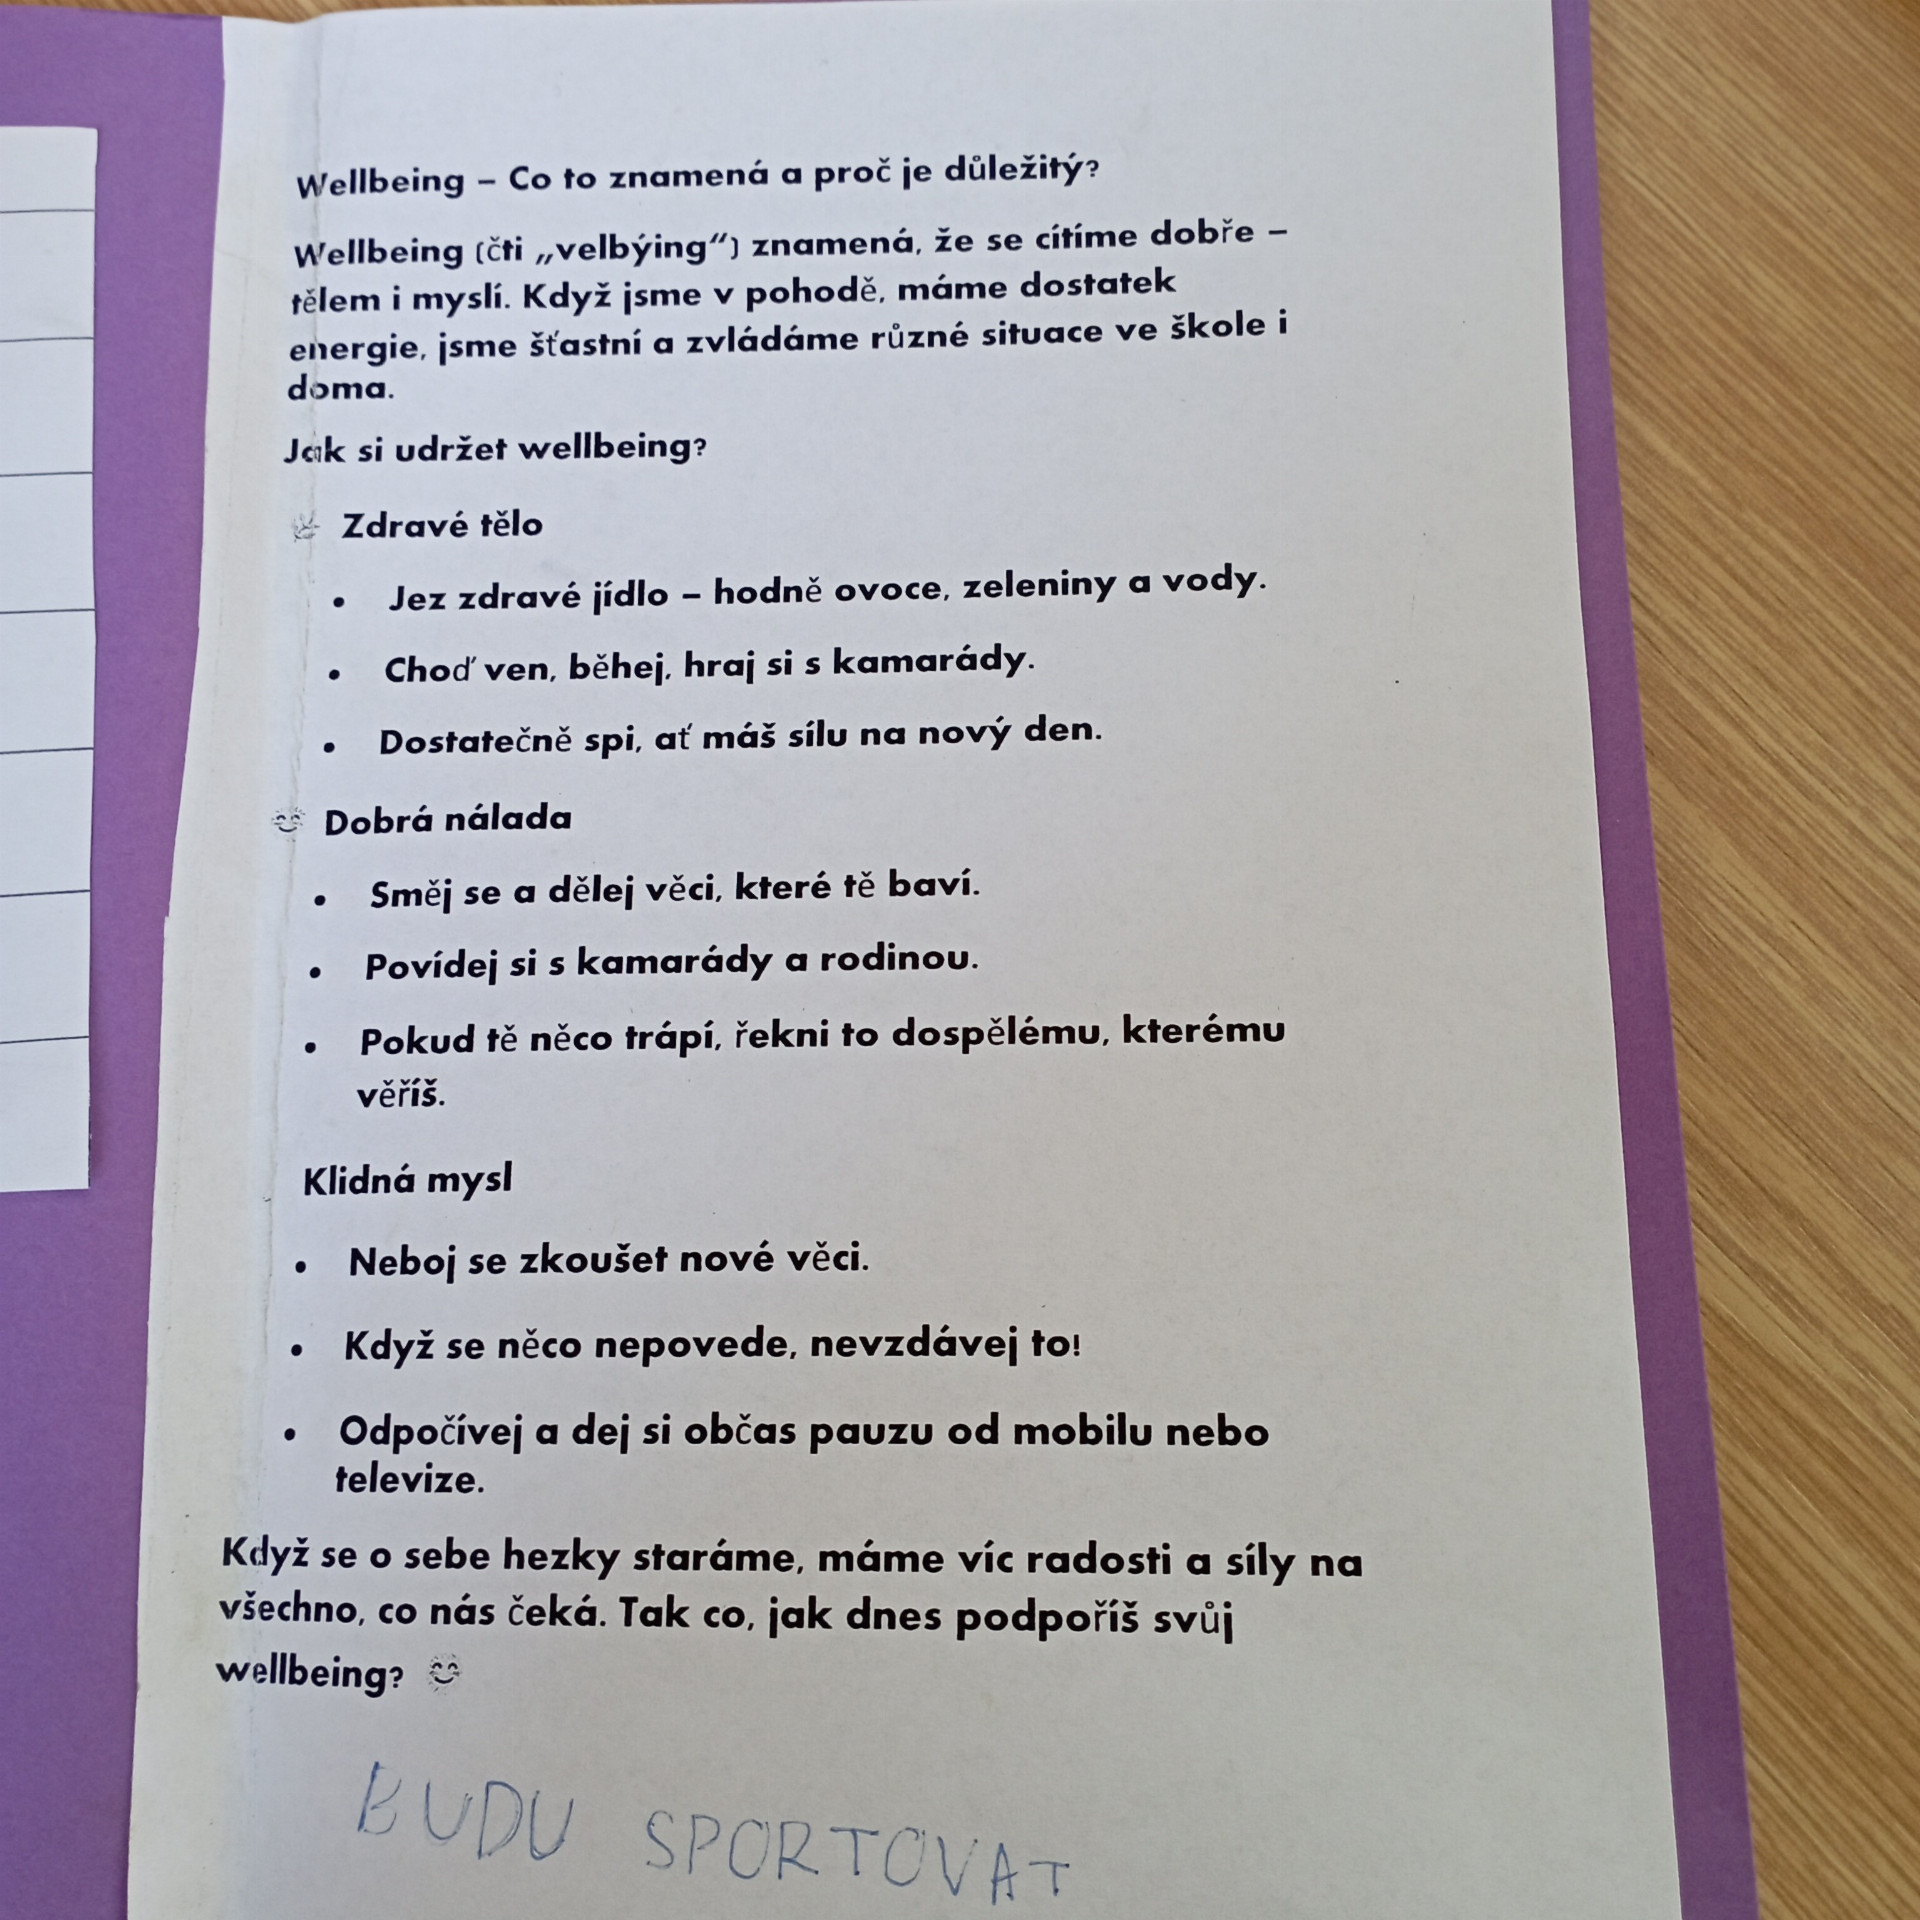 Wellbeing – Co to znamená a proč je důležitý?
Wellbeing (čti „velbýing“) znamená, že se cítíme dobře –
tělem i myslí. Když jsme v pohodě, máme dostatek
energie, jsme šťastní a zvládáme různé situace ve škole i
doma.
Jak si udržet wellbeing?
Zdravé tělo
• Jez zdravé jídlo – hodně ovoce, zeleniny a vody.
• Choď ven, běhej, hraj si s kamarády.
• Dostatečně spi, ať máš sílu na nový den.
😊 Dobrá nálada
• Směj se a dělej věci, které tě baví.
• Povídej si s kamarády a rodinou.
• Pokud tě něco trápí, řekni to dospělému, kterému
věříš.
Klidná mysl
• Neboj se zkoušet nové věci.
• Když se něco nepovede, nevzdávej to!
• Odpočívej a dej si občas pauzu od mobilu nebo
televize.
Když se o sebe hezky staráme, máme víc radosti a síly na
všechno, co nás čeká. Tak co, jak dnes podpoříš svůj
wellbeing? 😊
BUDU SPORTOVAT